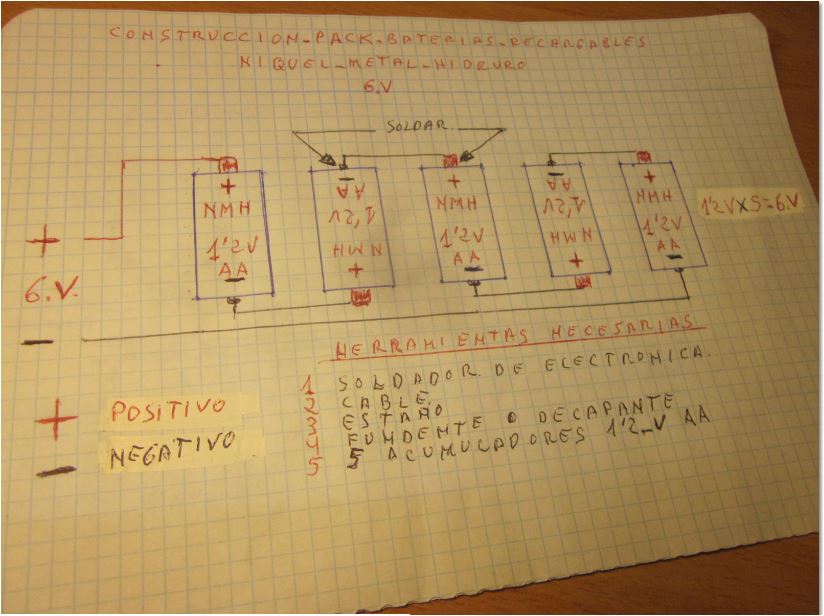 CONSTRUCCION-PACK-BATERIAS-RECARGABLES
NIQUEL-METAL-HIDRURO
6.V
SOLDAR
+
NMH
1'2V
AA
-
-
AA
1,2V
NMH
+
+
NMH
1'2V
AA
-
-
AA
1,2V
NMH
+
+
NMH
1'2V
AA
-
1'2VX5=6.V
+
6.V.
-
HERRAMIENTAS NECESARIAS
1 SOLDADOR DE ELECTRONICA.
2 CABLE.
3 ESTAÑO
4 FUNDENTE O DECAPANTE
5 5 ACUMULADORES 1'2-V AA
+ POSITIVO
- NEGATIVO